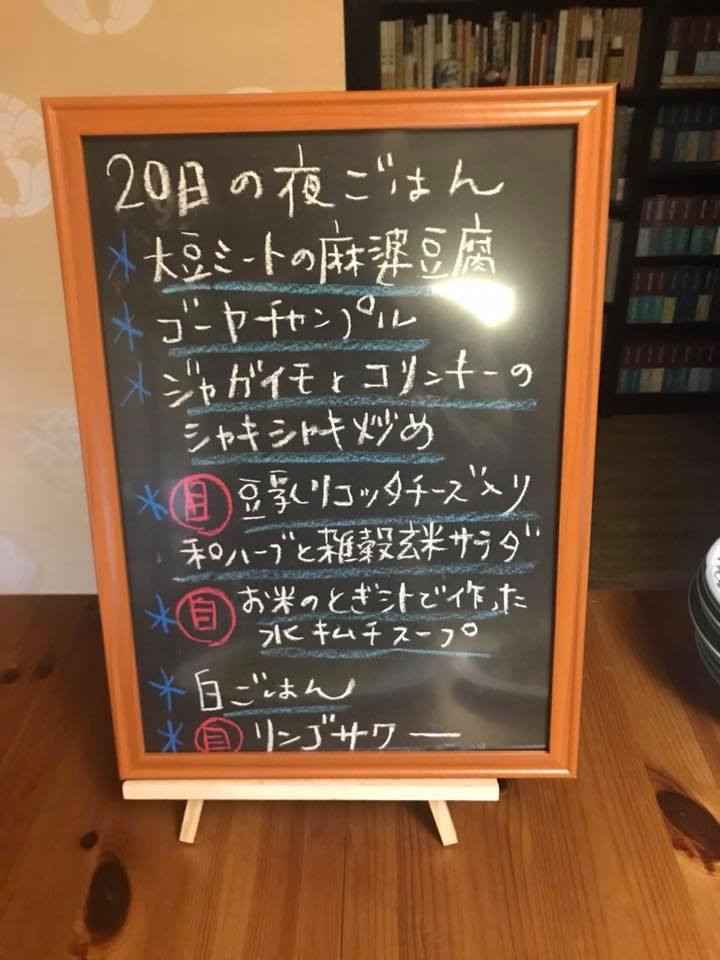 20日の夜ごはん
* 大豆ミートの麻婆豆腐
* ゴーヤチャンプル
* ジャガイモとコリンキーの
シャキシャキ炒め
* 自 豆乳リコッタチーズ入り
和ハーブと雑穀玄米サラダ
* 自 お米のとぎ汁で作った
水キムチスープ
* 白ごはん
* 自 リンゴサワー